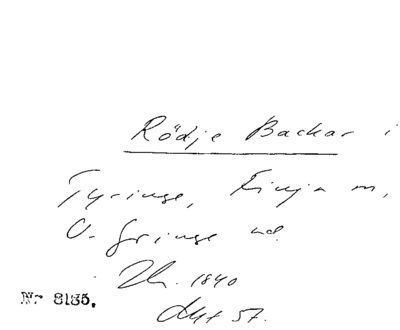 Rödje Backar i
Tyringe, Finja
V. Göinge hd.
Lh. 1840
Akt 57.
Nr 8185.